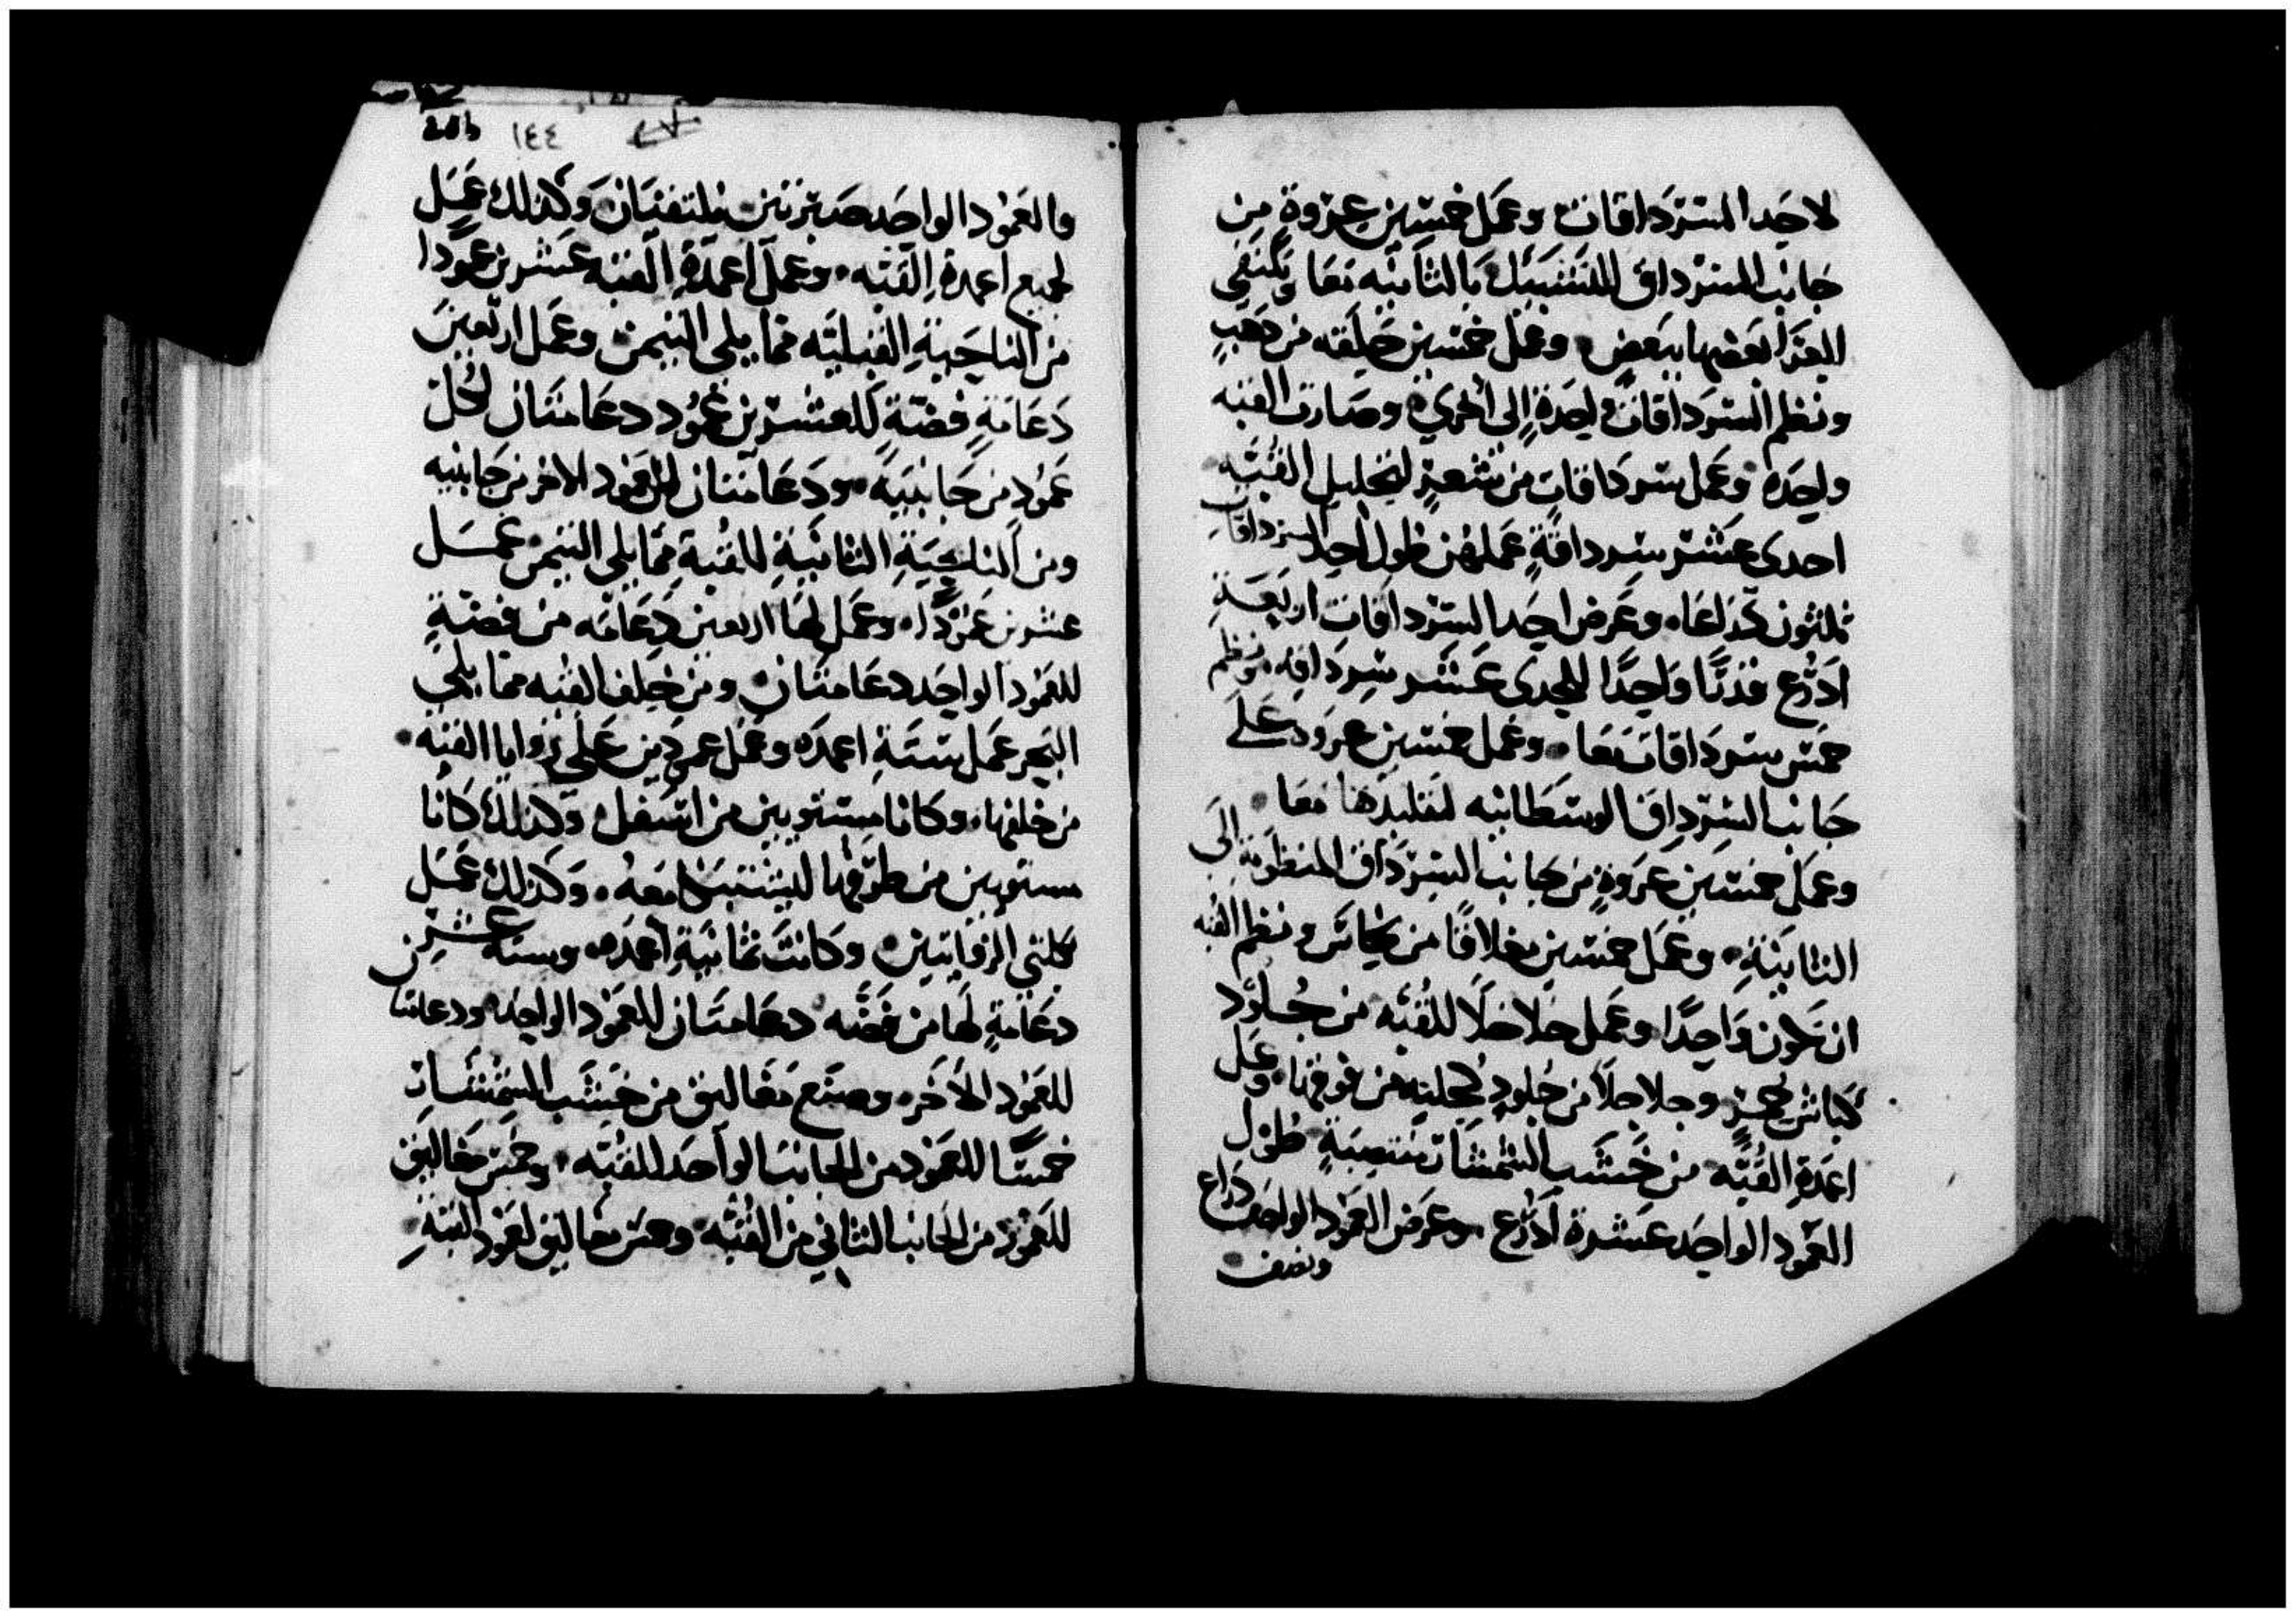 لاحد السردقات وعمل خمسين عروة من
جانب السرداق للتشبيك بالثانيه معا وتكتفي
العرا بعضها ببعض وعمل خمسين حليقه من دهب
ونظم السرداقات واحدة إلى اخري وصارت القبه
واحده وعمل سرداقات من شعر لتجليل القبه
احدى عشر سرداقة عملهن طول احد السرداقات
ثلثون ذراعا وعرض احد السرداقات اربعة
ادرع قدرا واحدا للحدى عشر سرداقه ونظم
خمس سرداقات معا وعمل خمسين عروة على
جانب السرداق الوسطانيه لتلبدها معا
وعمل خمسين عروة من جانب السرداق المنظومة الى
الثانية وعمل خمسين مغلاقا من نحاس ونظم القبه
ان تكون واحدا وعمل خلاخلا للقبه من جلود
كباش حمر وجلاجلا من جلود من فوقها وعمل
اعمدة القبه من خشب الشمشات منتصبة طول
العمود الواحد عشرة ادرع وعرض العمود الواحد دراع
ونصف
١٤٤
والعمود الواحد يلتقيان وكذلك عمل
لجميع اعمدة القبه وعمل اعمدة القبه عشرين عمودا
من الناحية القبليه مما يلي التيمن وعمل اربعين
دعامة فضة للعشرين عمود دعامتان لكل
عمود من جانبيه ودعامتان للعمود الاخر من جانبيه
ومن الناحية الثانية للقبة مما يلي التيمن عمل
عشرين عمودا وعمل لها اربعين دعامه من فضة
للعمود الواحد دعامتان ومن خلف القبه مما يلي
البحر عمل ستة اعمده وعمل عمودين علي زوايا القبه
من خلفها وكانا مستويين من اسفل وكذلك كانا
مستويين من طرفها معه وكذلك عمل
كلتي الزوايتين وكانت ثمانية اعمده وسته عشر
دعامة لها من فضه دعامتان للعمود الواحد ودعامتا
للعمود الاخر وصنع مغاليق من خشب الشمشات
خمسا للعمود من الجانب الواحد للقبه وخمس مغاليق
للعمود من الجانب الثاني من القبه وخمس مغاليق لعمود القبة